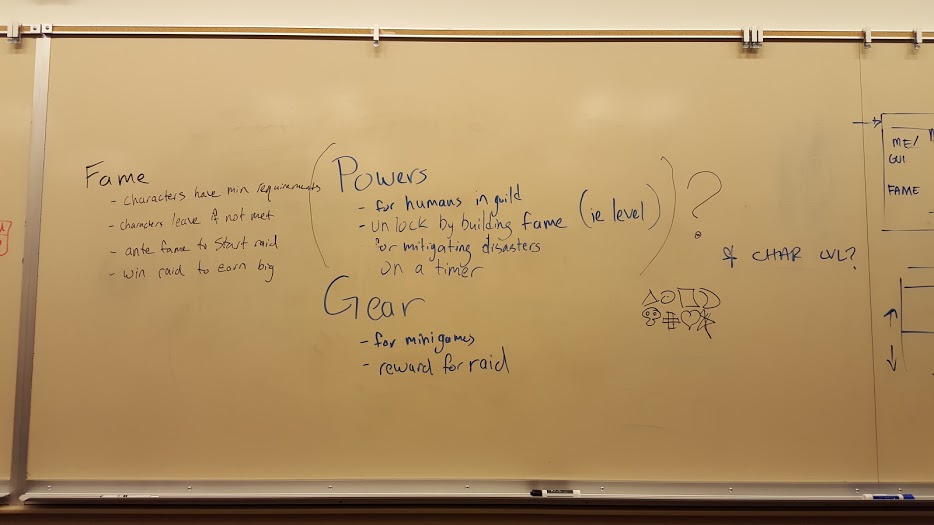 Fame
- characters have min requirements
- characters leave if not met
- ante fame to start raid
- win raid to earn big
(Powers
- for humans in guild
- unlock by building fame (ie level)
for mitigating disasters
on a timer)
?
Gear
- for minigames
- reward for raid
CHAR LVL?
ME/
GUI
FAME